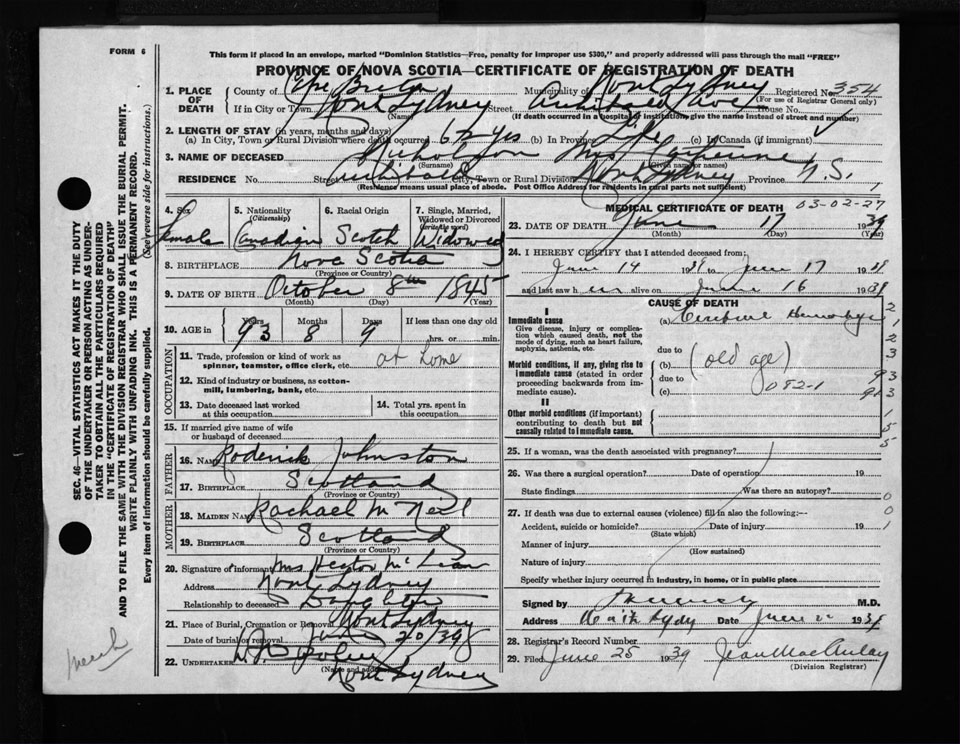 FORM 6
This form if placed in an envelope, marked "Dominion Statistics—Free, penalty for improper use $300," and properly addressed will pass through the mail "FREE"
PROVINCE OF NOVA SCOTIA—CERTIFICATE OF REGISTRATION OF DEATH
1. PLACE OF DEATH
County of Cape Breton Municipality of North Sydney Registered No. 354
(For use of Registrar General only)
If in City or Town North Sydney Street Archibald Ave House No.
(Name) (If death occurred in a hospital or institution, give the name instead of street and number)
2. LENGTH OF STAY (in years, months and days)
(a) In City, Town or Rural Division where death occurred 62 yrs (b) In Province Life (c) In Canada (if immigrant)
3. NAME OF DECEASED Nicholson Mrs
(Surname) (Given name or names)
RESIDENCE No. Street Archibald City, Town or Rural Division North Sydney Province N.S.
(Residence means usual place of abode. Post Office Address for residents in rural parts not sufficient)
4. Sex Female
5. Nationality (Citizenship) Canadian
6. Racial Origin Scotch
7. Single, Married, Widowed or Divorced (write the word) Widowed
8. BIRTHPLACE Nova Scotia
(Province or Country)
9. DATE OF BIRTH October 8th 1845
(Month) (Day) (Year)
10. AGE in Years Months Days If less than one day old
93 8 9 hrs. or min.
OCCUPATION
11. Trade, profession or kind of work as spinner, teamster, office clerk, etc. at Home
12. Kind of industry or business, as cotton-mill, lumbering, bank, etc.
13. Date deceased last worked at this occupation
14. Total yrs. spent in this occupation
15. If married give name of wife or husband of deceased
FATHER
16. Name Roderick Johnston
17. BIRTHPLACE Scotland
(Province or Country)
MOTHER
18. MAIDEN NAME Rachael McNeil
19. BIRTHPLACE Scotland
(Province or Country)
20. Signature of informant Mrs Hector McLean
Address North Sydney
Relationship to deceased Daughter
21. Place of Burial, Cremation or Removal North Sydney
Date of burial or removal June 20/39
22. UNDERTAKER
(Name and address)
North Sydney
MEDICAL CERTIFICATE OF DEATH
03-02-27
23. DATE OF DEATH June 17 1939
(Month) (Day) (Year)
24. I HEREBY CERTIFY that I attended deceased from:
June 14 1939 to June 17 1939
and last saw her alive on June 16 1939
CAUSE OF DEATH
I
Immediate cause
Give disease, injury or complication which caused death, not the mode of dying, such as heart failure, asphyxia, asthenia, etc.
(a) Cerebral Hemorrhage
due to
Morbid conditions, if any, giving rise to immediate cause (stated in order proceeding backwards from immediate cause).
(b) (old age)
due to
082-1
(c)
II
Other morbid conditions (if important) contributing to death but not causally related to immediate cause.
25. If a woman, was the death associated with pregnancy?
26. Was there a surgical operation? Date of operation 19
State findings Was there an autopsy?
27. If death was due to external causes (violence) fill in also the following:—
Accident, suicide or homicide? Date of injury 19
(State which)
Manner of injury
(How sustained)
Nature of injury
Specify whether injury occurred in industry, in home, or in public place
Signed by M.D.
Address North Sydney Date June 1939
28. Registrar's Record Number
29. Filed June 25 1939 Jean MacAulay
(Division Registrar)
SEC. 46—VITAL STATISTICS ACT MAKES IT THE DUTY
OF THE UNDERTAKER OR PERSON ACTING AS UNDER-
TAKER TO OBTAIN ALL THE PARTICULARS REQUIRED
IN THE "CERTIFICATE OF REGISTRATION OF DEATH"
AND TO FILE THE SAME WITH THE DIVISION REGISTRAR WHO SHALL ISSUE THE BURIAL PERMIT.
WRITE PLAINLY WITH UNFADING INK. THIS IS A PERMANENT RECORD.
Every item of information should be carefully supplied. (See reverse side for instructions.)